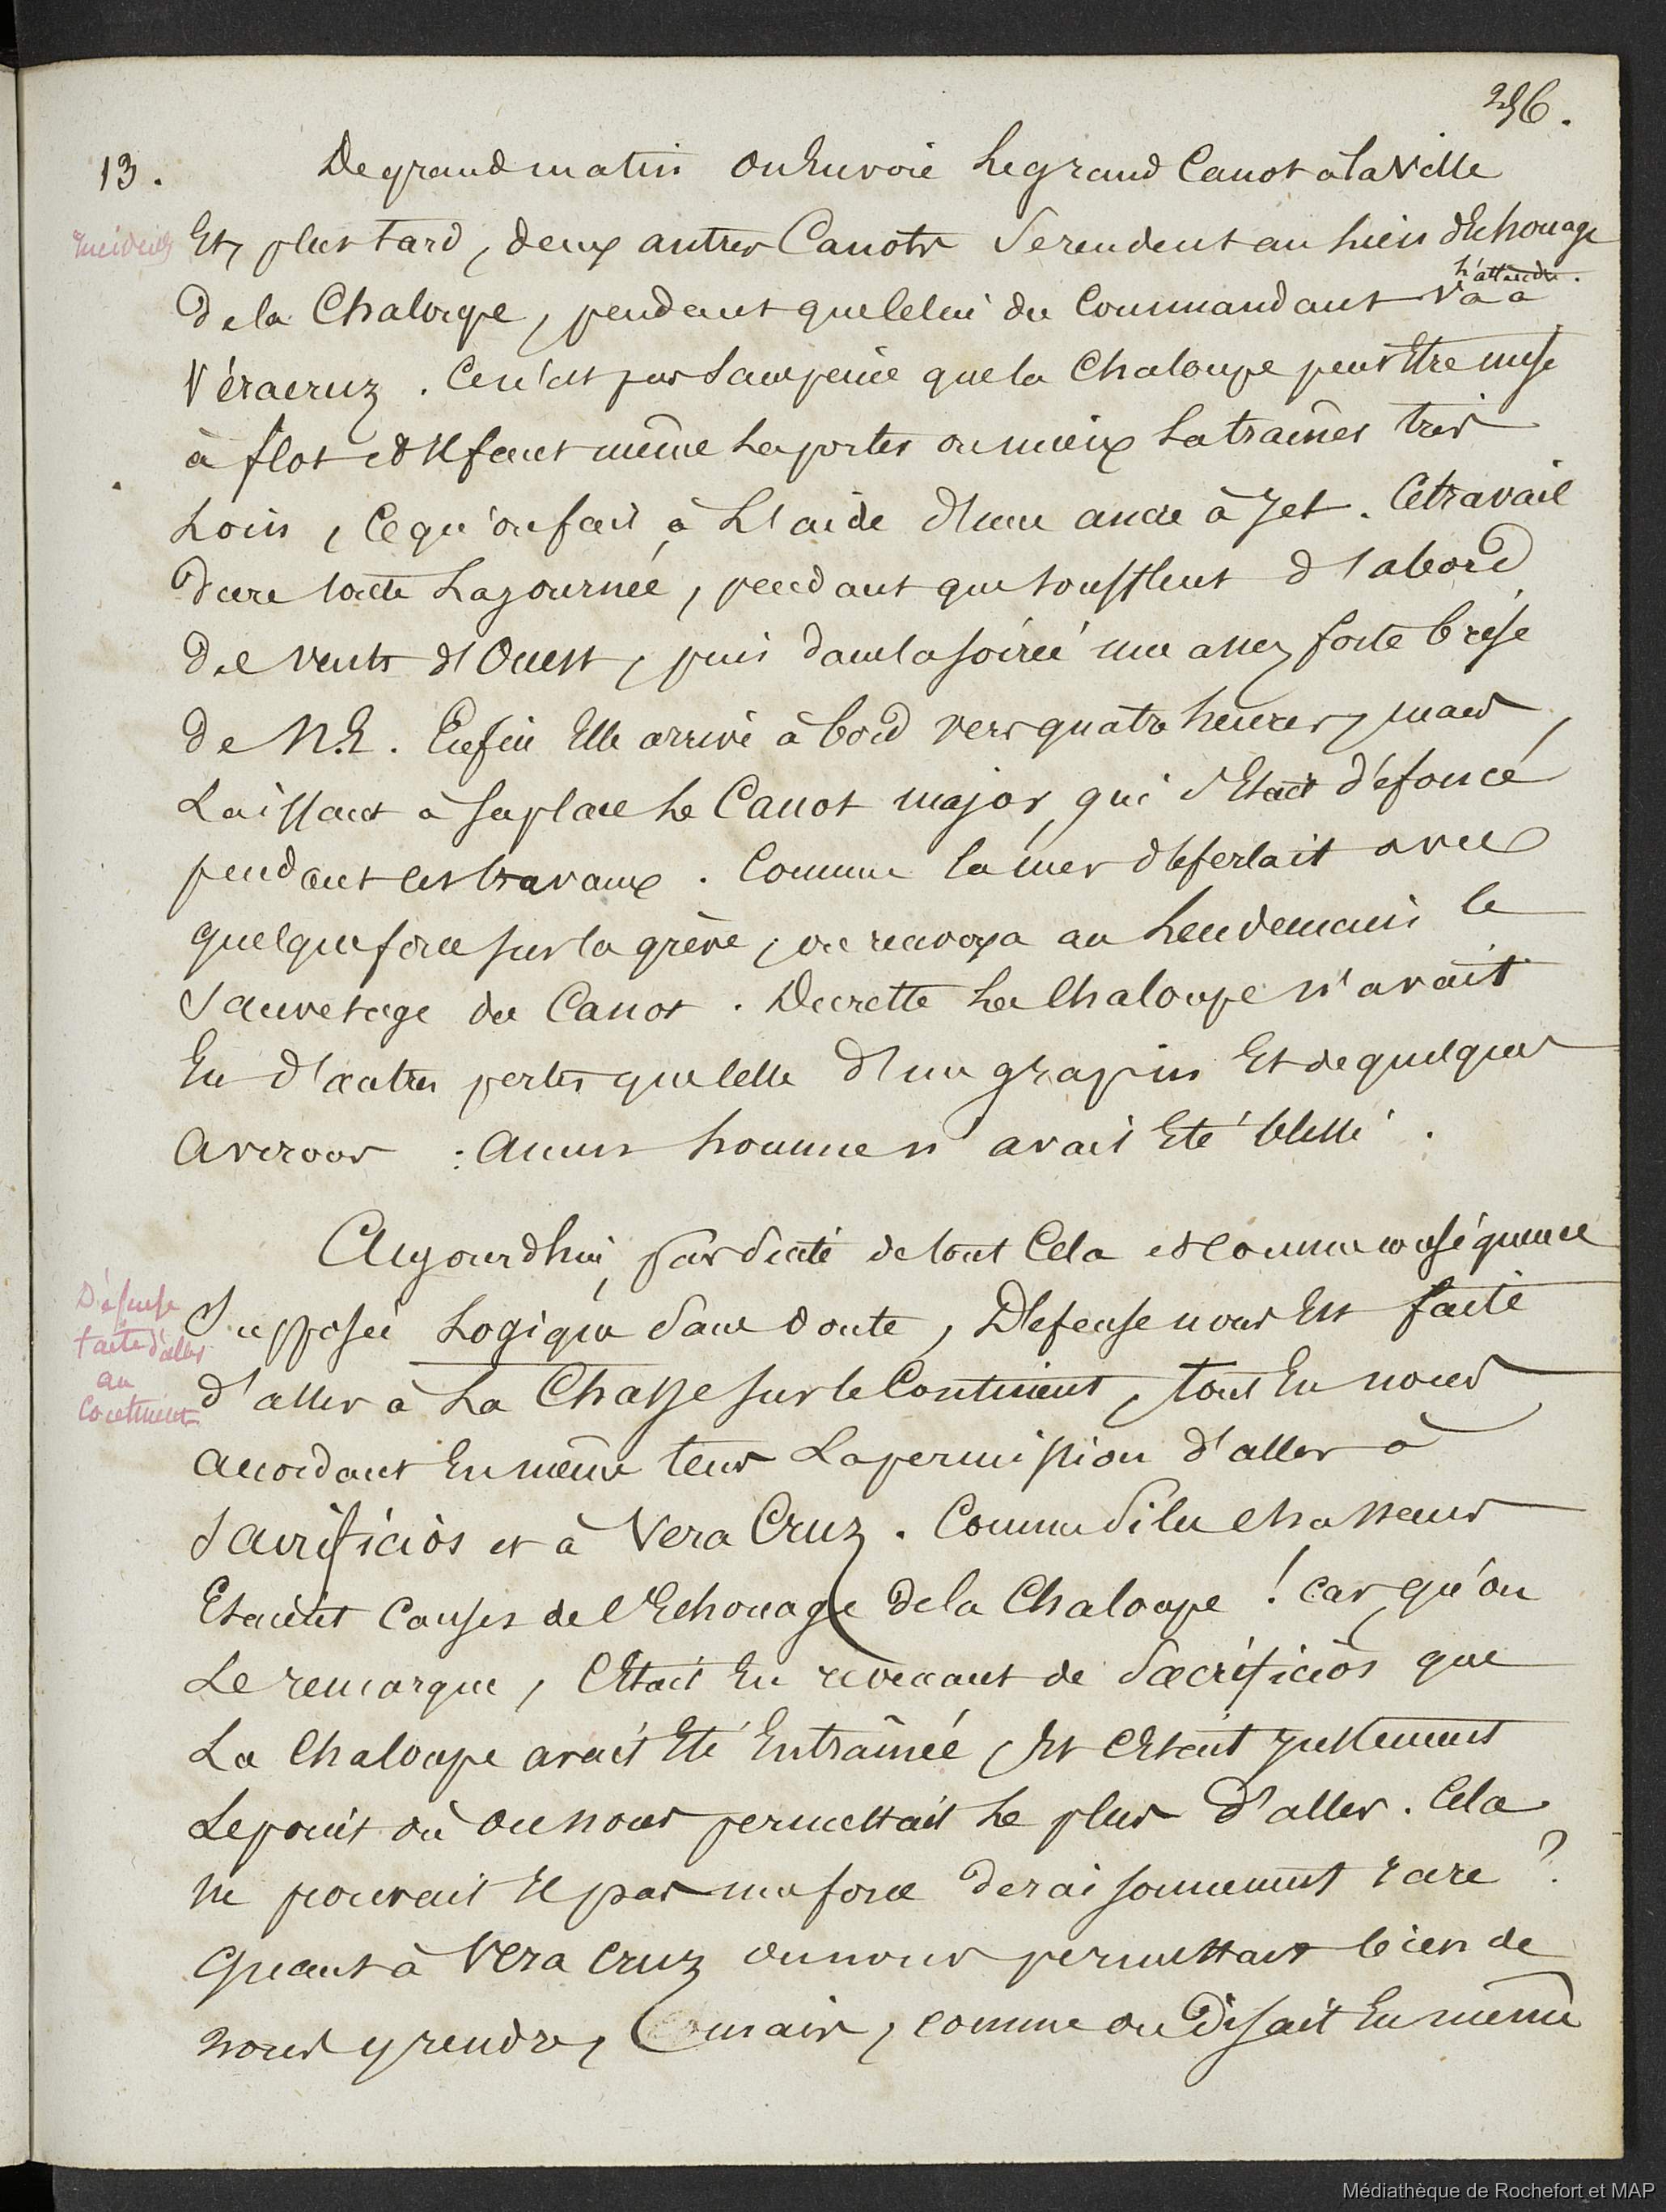 256.
13. De grand matin on Envoie Le grand Canot à la Ville
Incidents Et, plus tard, deux autres Canots Se rendent au Lieu d'Echouage
l'attendre.
de la Chaloupe, pendant que celui du Commandant va à
Véracruz. Ce n'est pas Sans peine que la Chaloupe peut Etre mise
à flot et Il faut même La porter ou mieux La traîner très
Loin, Ce qu'on fait à L'aide d'une ancre à Jet. Ce travail
dure toute La Journée, pendant que soufflent d'abord
des vents d'Ouest, puis dans la soirée une assez forte brise
de N.E. Enfin Elle arrive à bord vers quatre heures, mais,
Laissant à Sa place Le Canot major, qui s'Etait défoncé
pendant ces travaux. Comme la mer déferlait avec
quelque force sur la grève, on renvoya au Lendemain le
Sauvetage du Canot. Du reste La Chaloupe n'avait
Eu d'autres pertes que celle d'un grapin Et de quelques
avirons : aucun homme n'avait Eté blessé.
Aujourd'hui, par suite de tout Cela et Comme conséquence
Défense faite d'aller au Continent
Supposée Logique Sans doute, Défense nous Est faite
d'aller à La Chasse sur le Continent, tout En nous
accordant En même tems La permission d'aller à
Sacrificiòs et à Vera Cruz. Comme Si les chasseurs
Etaient Causes de l'Echouage de la Chaloupe ! Car, qu'on
Le remarque, C'Etait En revenant de Sacrificiòs que
La Chaloupe avait Eté Entraînée, Et C'Etait Justement
Le point où on nous permettait Le plus d'aller. Cela
ne prouvait Il pas une force de raisonnement rare ?
Quant à Vera Cruz on nous permettait bien de
nous y rendre, mais, comme on disait En même